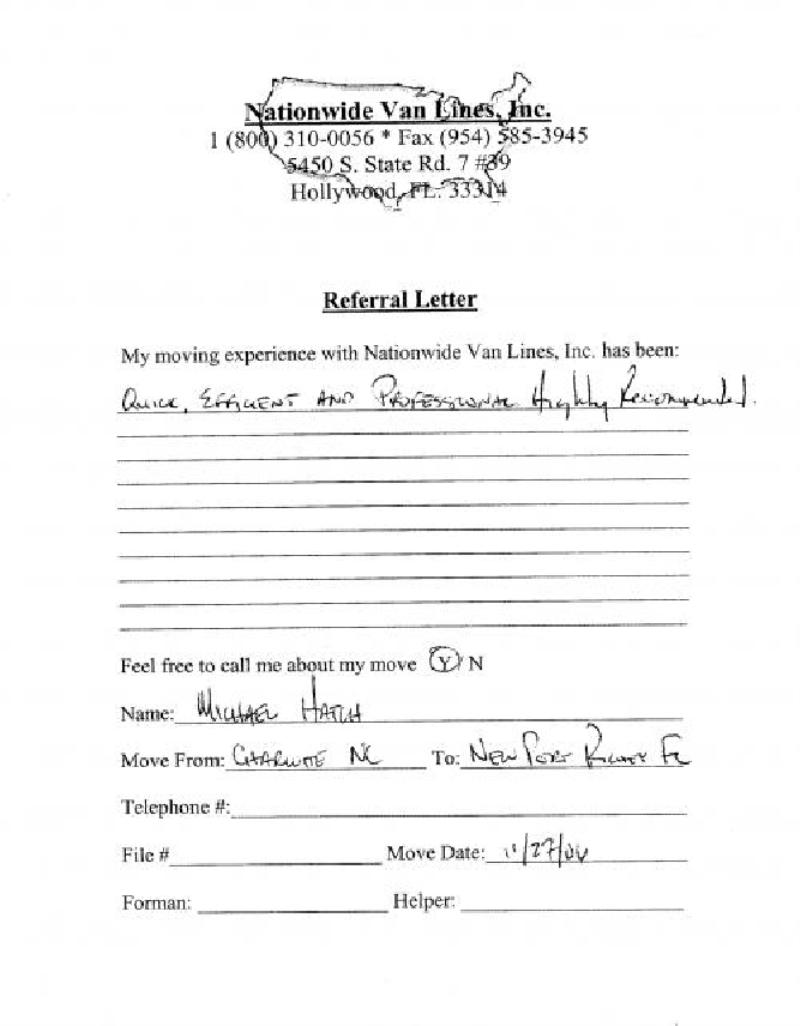 Nationwide Van Lines, Inc.
1 (800) 310-0056 * Fax (954) 585-3945
5450 S. State Rd. 7 #39
Hollywood, FL. 33314
Referral Letter
My moving experience with Nationwide Van Lines, Inc. has been:
Quick, Efficient AND Professional Highly Recommended.
Feel free to call me about my move Y/N
Name: Michael Hatch
Move From: Charlotte NC To: New Port Richey FL
Telephone #:
File # Move Date: 11/27/06
Forman: Helper: